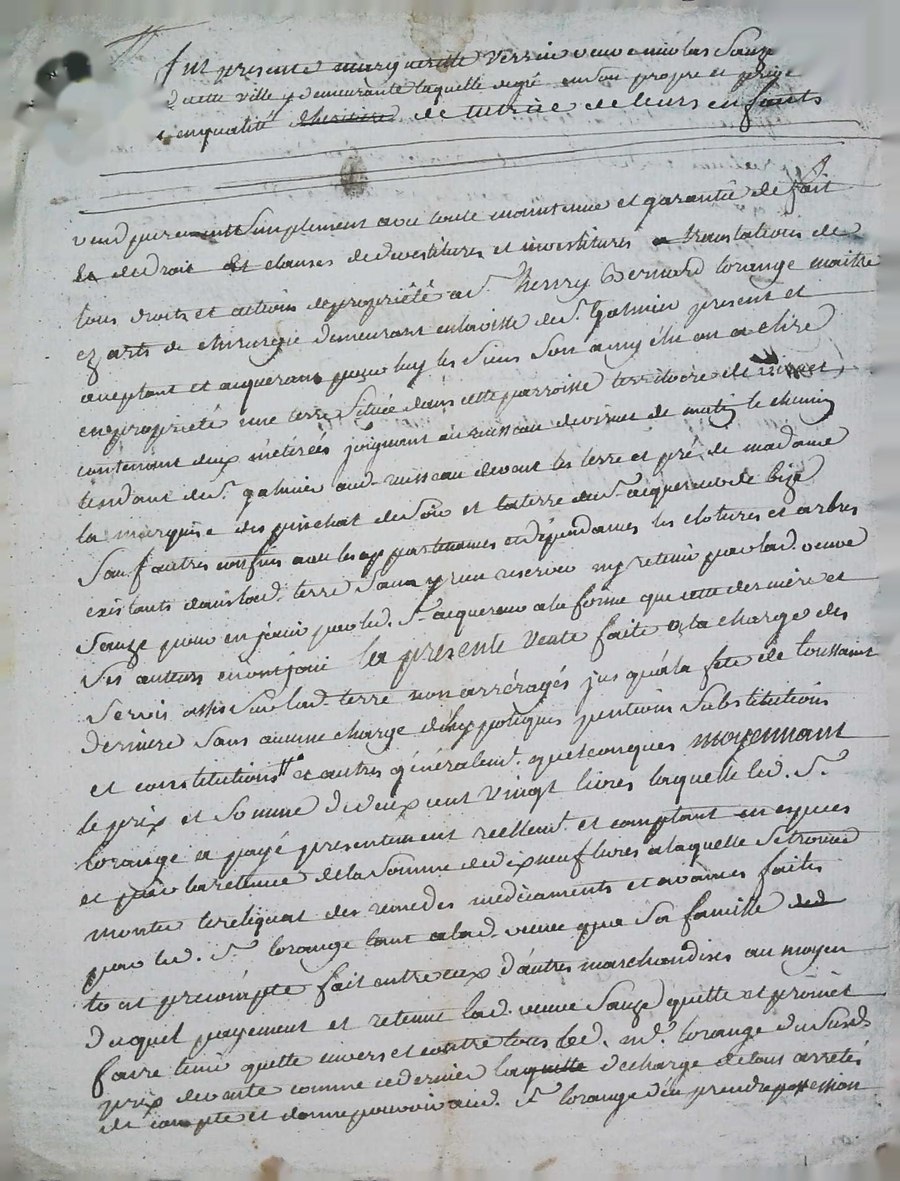 fut presente marguerite Verrin veuve nicolas Sauze
de cette ville y demeurante laquelle de gré en son propre et privé
et en qualité d'heritiere de tutrice de leurs enfants
vend purement simplement avec toute maintenue et garantie de fait
et de droit et clauses de devestitures et investitures et translations de
tous droits et actions de propriété a sr. henry Bernard lorange maitre
ez arts de chirurgie demeurant en la ville de st. Galmier present et
acceptant et aquerant pour luy les siens son amy élu ou a elire
en propriété une terre située dans cette parroisse territoire de
contenant deux métérées joignant au ruisseau de de matin le chemin
tendant de st. galmier aud. ruisseau de vent les terre et pré de madame
la marquise des pinchat de soir et la terre du sr. aquereur de bize
sauf autres confins avec les appartenances et dépendances les clotures et arbres
existants dans lad. terre sans y rien reserver ny retenir par lad. veuve
Sauze pour en jouir par led. sr. aquereur a la forme que cette derniere et
ses auteurs en ont joui la presente vente faite a la charge des
servis assis sur lad. terre non arréragés jusqu'à la fete de toussaint
derniere sans aucune charge d'hyppoteques pentions substitutions
et constitutions et autres généralemt. quelconques moyennant
le prix et somme de deux cent vingt livres laquelle led. sr.
lorange a payé presentement reellemt. et comptant en especes
et par la retenue de la somme de dixneuf livres a laquelle se trouve
monter le reliquat des remedes medicaments et avances faites
par led. sr. lorange tant a lad. veuve que sa famille ded
tout precompte fait entre eux d'autres marchandises au moyen
duquel payement et retenue lad. veuve Sauze quitte et promet
faire tenir quitte envers et contre tous led. mr. lorange du susd.
prix de vente comme ce dernier laquitte decharge de tous arretés
de compte et donne pouvoir aud. sr. lorange d'en prendre possession